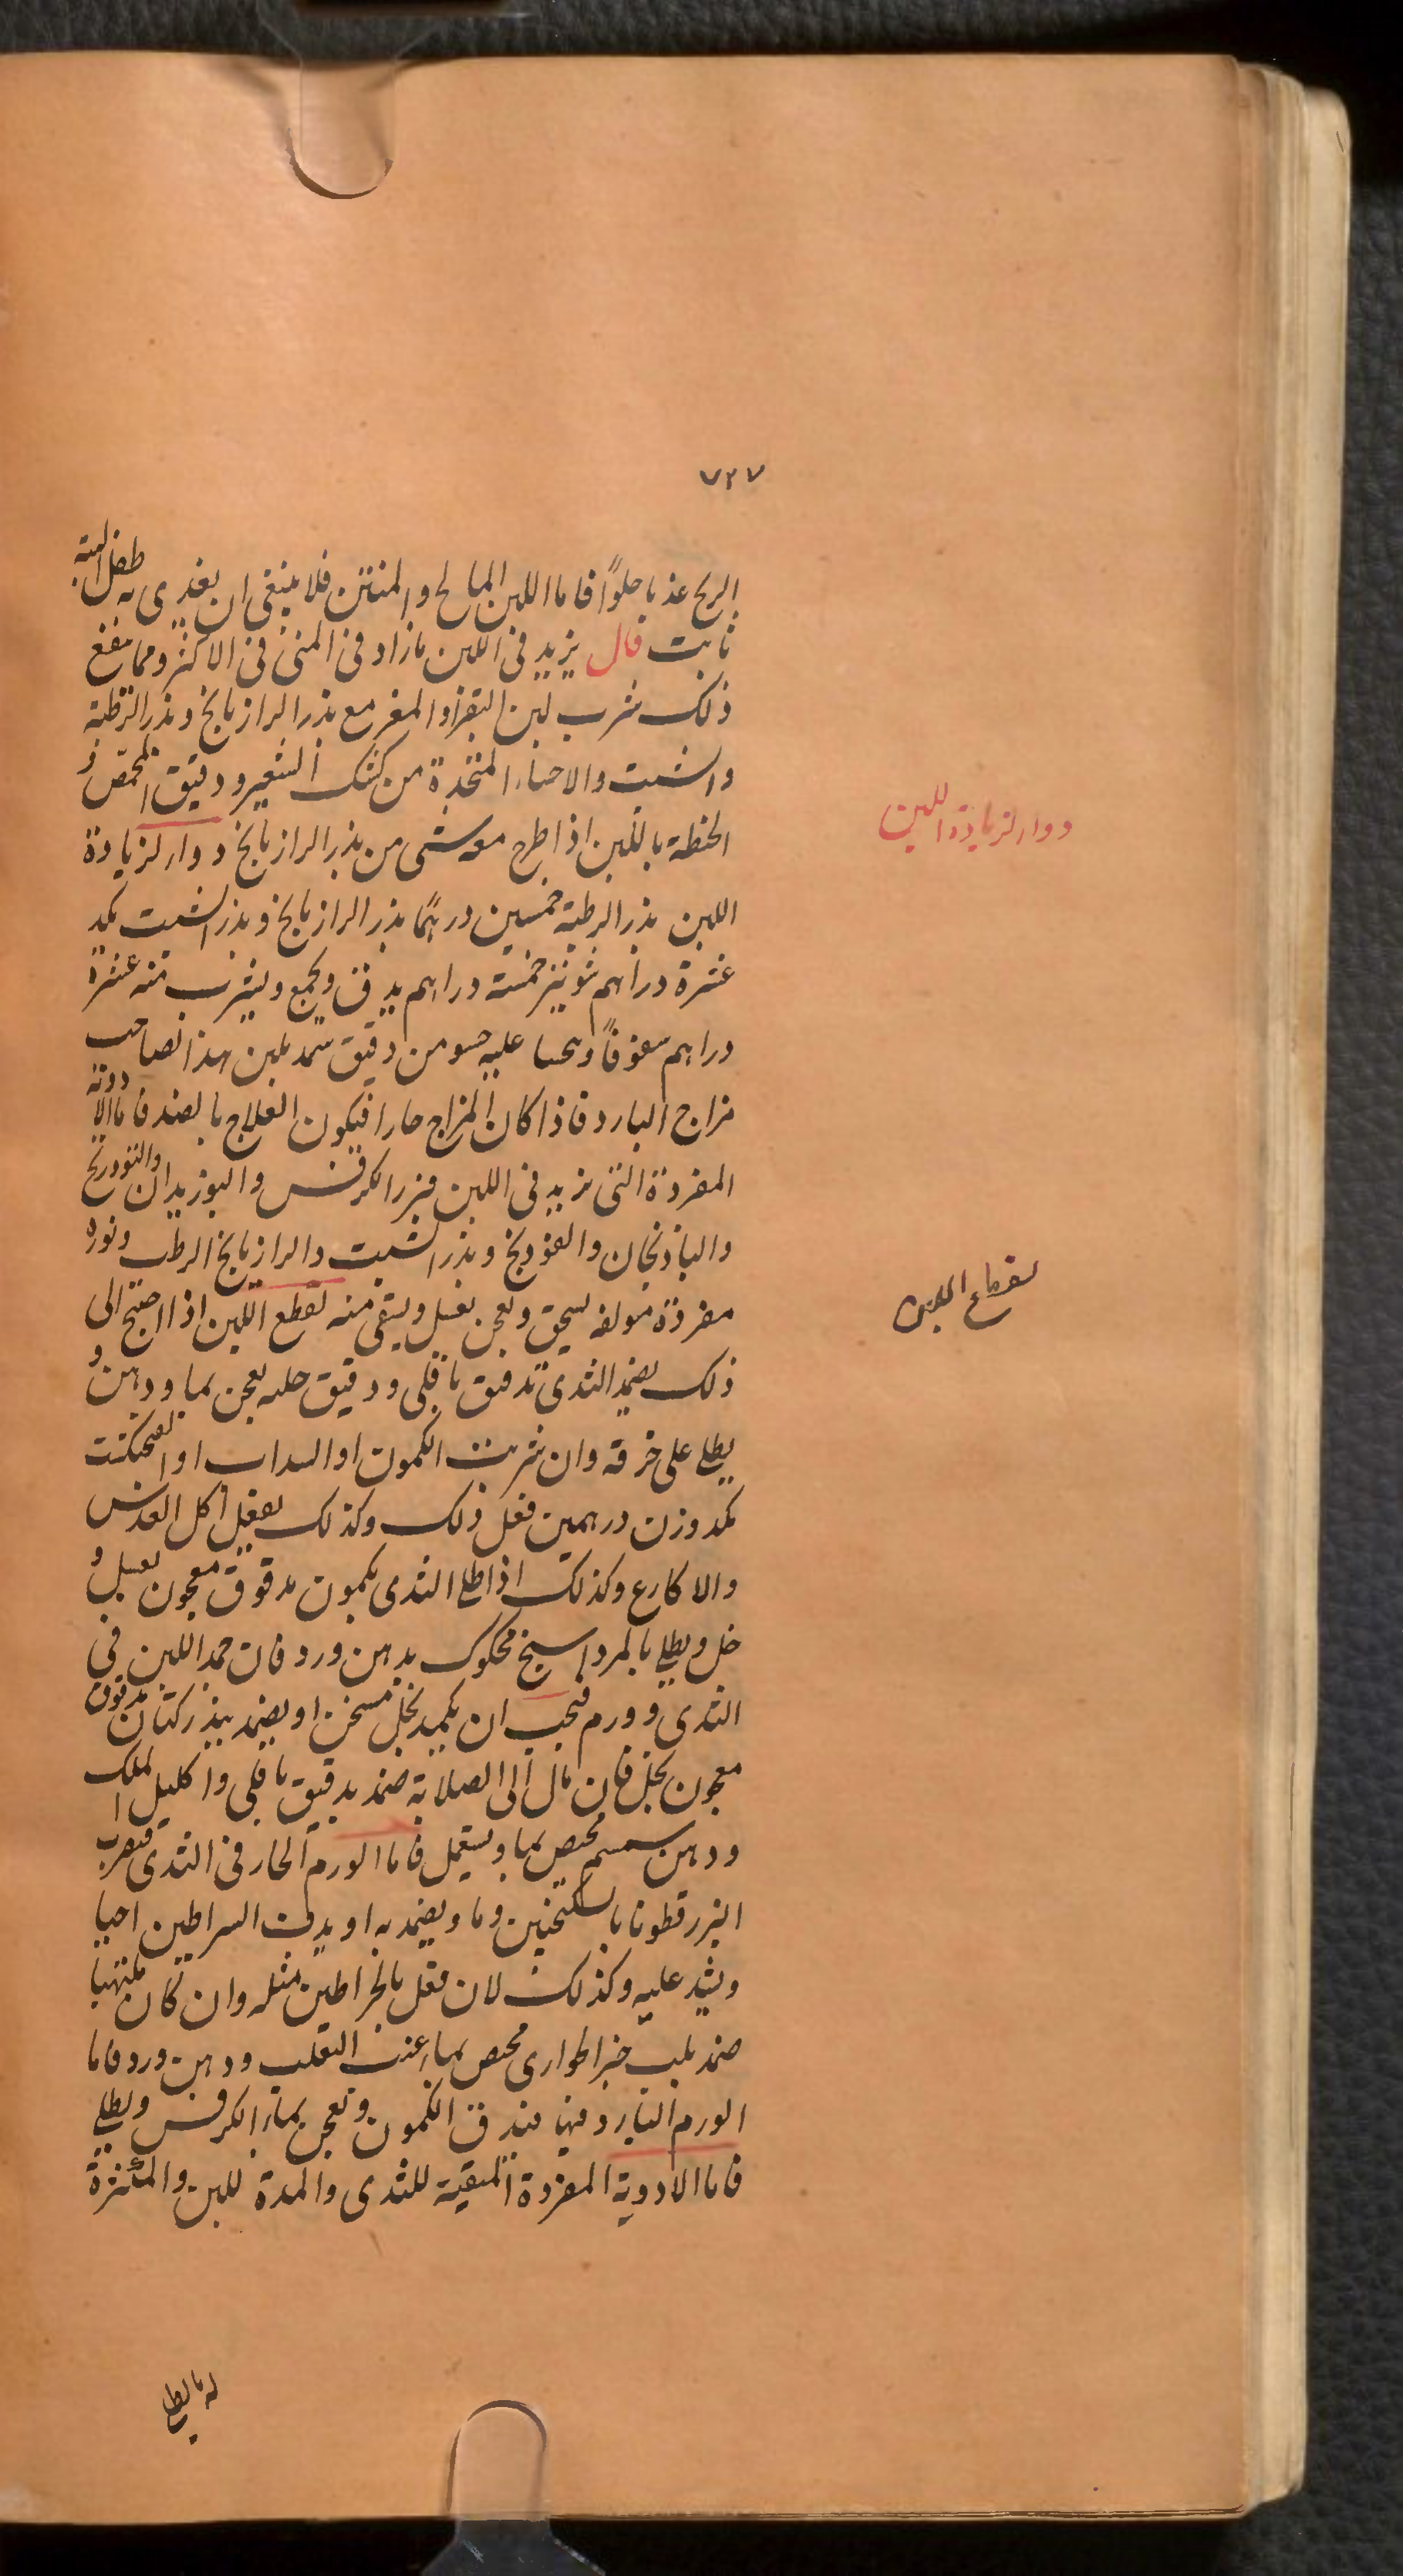 ٧٢٧
الريح عذبا حلوًا فاما اللبن المالح والمنتن فلا ينبغى ان يغذى به طفل البتة
ثابت قال يزيد فى اللبن ما زاد فى المنى فى الاكثر ومما ينفع
ذلك شرب لبن البقر او المعز مع بذر الرازيانج وبذر الرطبة
والشبت والاحساء المتخذة من كشك الشعير ودقيق الحمّص و
الحنطة باللبن اذا طرح معه شى من بذر الرازيانج دواء لزيادة
اللبن بذر الرطبة خمسين درهمًا بذر الرازيانج وبذر الشبت مكد
عشرة دراهم شونيز خمسة دراهم يدق ويجمع ويشرب منه عشرة
دراهم سفوفًا ويحسا عليه حسو من دقيق سمد بلبن هذا لصاحب
مزاج البارد فاذا كان المزاج حارا فيكون العلاج بالضد فاما الادوية
المفردة التى تزيد فى اللبن فبزر الكرفس والبوزيدان والتودرنج
والباذنجان والفودنج وبذر الشبت والرازيانج الرطب ونوره
مفردة مولفه يسحق ويعجن بعسل ويسقى منه لقطع اللبن اذا احتيج الى
ذلك يضمد الثدى بدقيق باقلى ودقيق حلبه يعجن بماء ودهن و
يطلى على خرقه وان شربت الكمون او السداب او الفنجنكشت
مكد وزن درهمين فعل ذلك وكذلك يفعل اكل العدس
والاكارع وكذلك اذا طلى الثدى بكمون مدقوق معجون بعسل و
خل ويطلى بالمرداسنج محكوك بدهن ورد فان جمد اللبن فى
الثدى وورم فيجب ان يكمد بخل مسخن او يضمد ببذر كتان مدقوق
معجون بخل فان مال الى الصلابة ضمد بدقيق باقلى واكليل الملك
ودهن سمسم محيص بماء ويستعمل فاما الورم الحار فى الثدى فيضرب
البزر قطونا بالسكنجبين وماء ويضمد به او يدق السراطين احيا
ويشد عليه وكذلك لان فعل بالخراطين مثله وان كان ملتهبا
ضمد بلب خبز الحوارى محيص بماء عنب الثعلب ودهن ورد فاما
الورم البارد فيها فيدق الكمون ويعجن بماء الكرفس ويطلى
فاما الادوية المفردة المنقية للثدى والمدة للبن والمكثرة
دواء لزيادة اللبن
لقطع اللبن
له بالطل